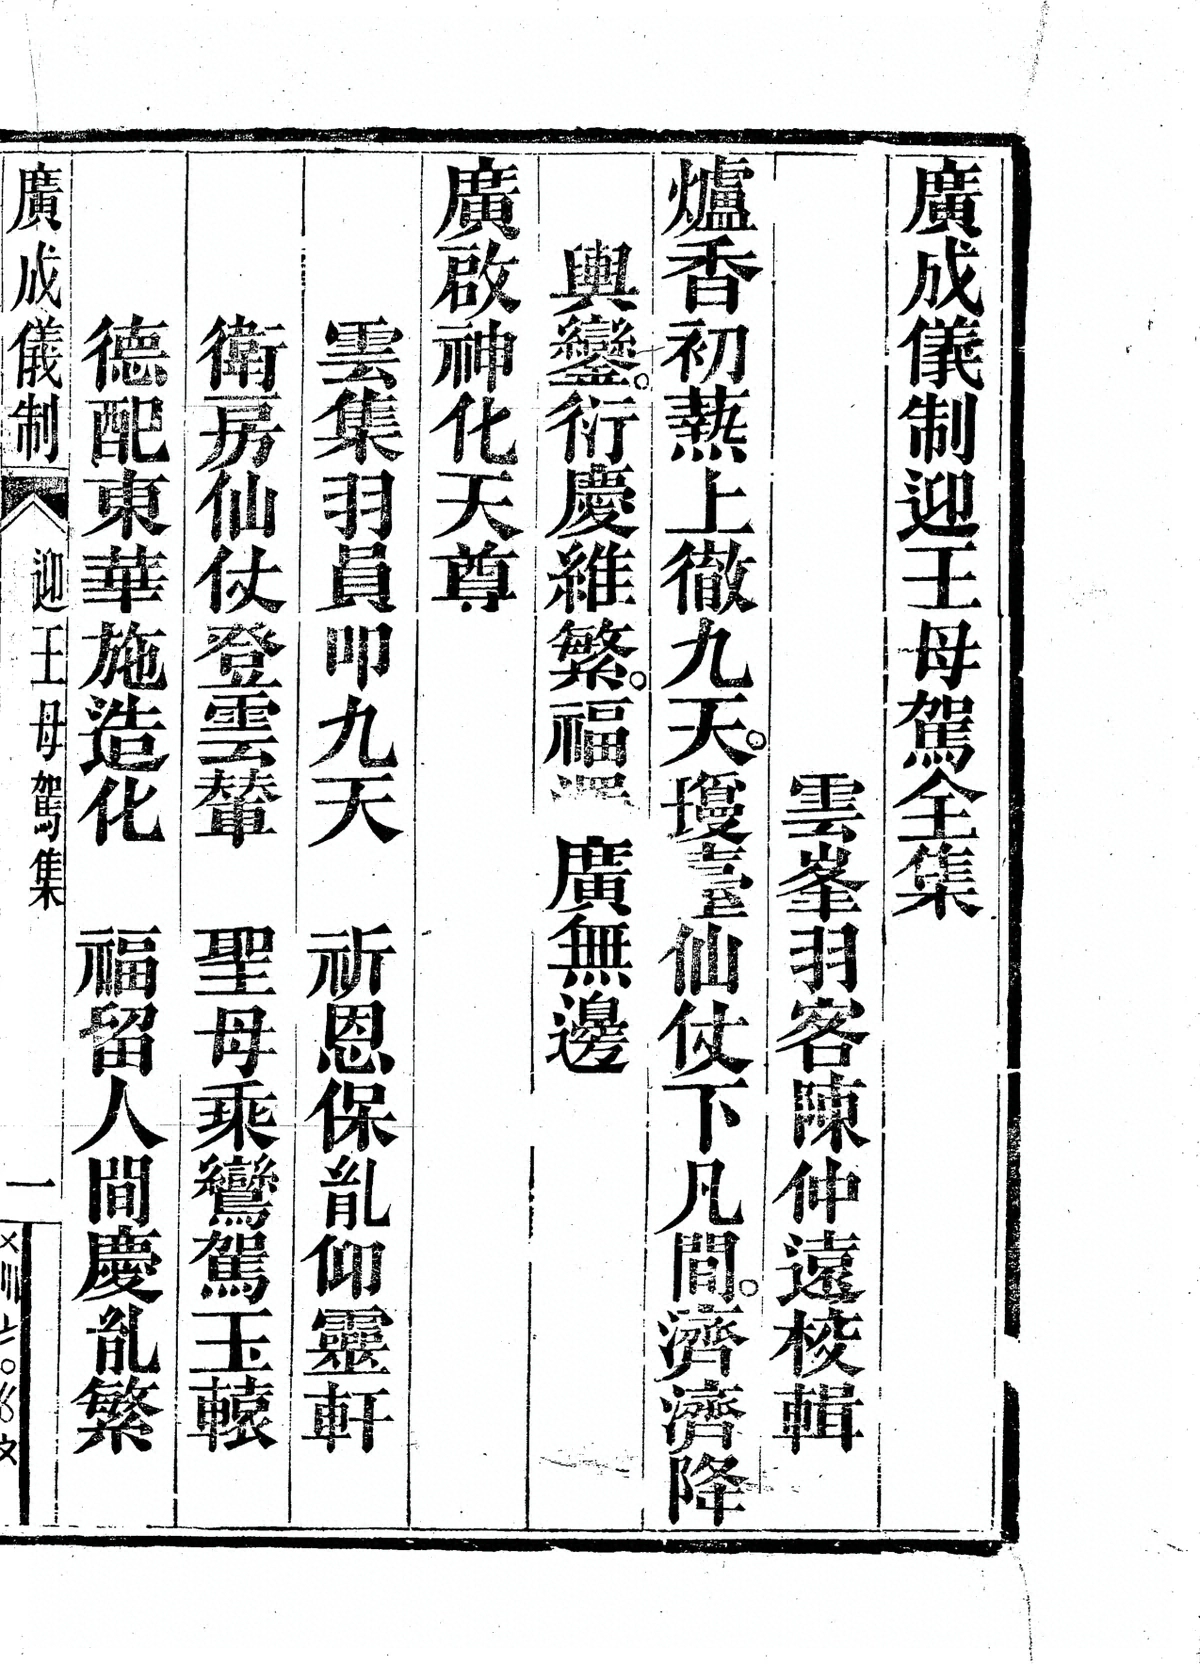 廣成儀制迎王母駕全集
雲峯羽客陳仲遠校輯
爐香初爇上徹九天。瓊臺仙仗下凡間。濟濟降
輿鑾。衍慶維繁。福澤廣無邊
廣啟神化天尊
雲集羽員叩九天　祈恩保胤仰靈軒
衛房仙仗登雲輦　聖母乘鸞駕玉轅
德配東華施造化　福留人間慶胤繁
廣成儀制　迎王母駕集　一